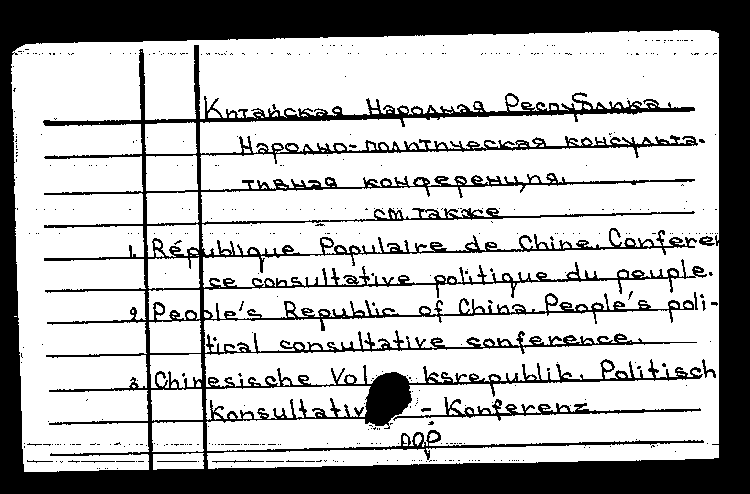 Китайская Народная Республика.
Народно-политическая консульта-
тивная конференция.
см. также
1. République Populaire de Chine. Conferen
ce consultative politique du peuple.
2. People's Republic of China. People's poli-
tical consultative conference.
3. Chinesische Volksrepublik. Politisch
Konsultativ - Konferenz